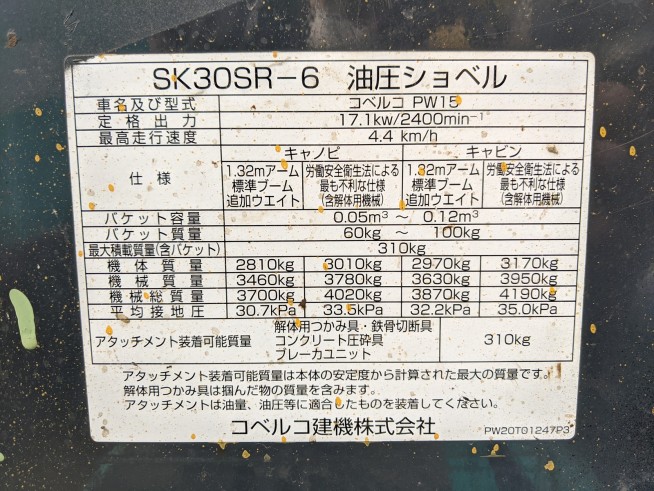 SK30SR-6 油圧ショベル
車名及び型式 コベルコ PW15
定格出力 17.1kw/2400min⁻¹
最高走行速度 4.4 km/h
仕様 キャノピ キャビン
1.32mアーム 労働安全衛生法による 1.32mアーム 労働安全衛生法による
標準ブーム 最も不利な仕様 標準ブーム 最も不利な仕様
追加ウエイト (含解体用機械) 追加ウエイト (含解体用機械)
バケット容量 0.05m³ ～ 0.12m³
バケット質量 60kg ～ 100kg
最大積載質量(含バケット) 310kg
機体質量 2810kg 3010kg 2970kg 3170kg
機械質量 3460kg 3780kg 3630kg 3950kg
機械総質量 3700kg 4020kg 3870kg 4190kg
平均接地圧 30.7kPa 33.5kPa 32.2kPa 35.0kPa
アタッチメント装着可能質量 解体用つかみ具・鉄骨切断具 310kg
コンクリート圧砕具
ブレーカユニット
アタッチメント装着可能質量は本体の安定度から計算された最大の質量です。
解体用つかみ具は掴んだ物の質量を含みます。
アタッチメントは油量、油圧等に適合したものを装着してください。
コベルコ建機株式会社 PW20T01247P3